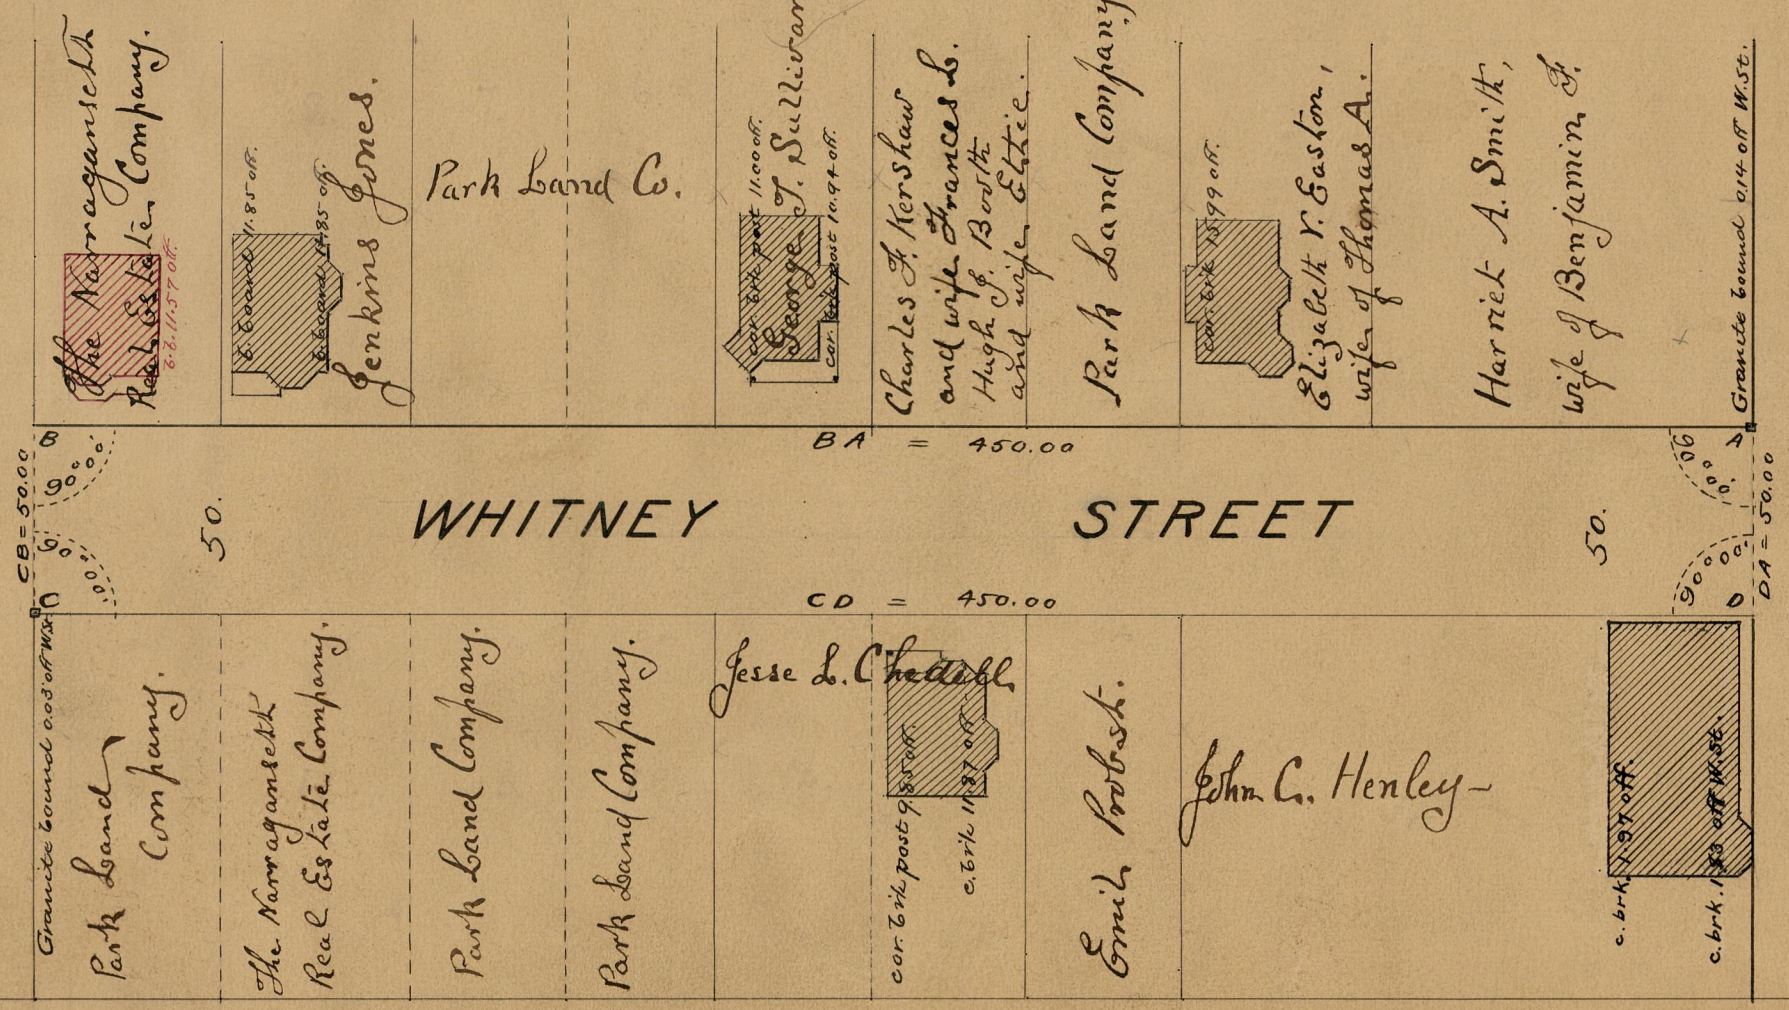 The Narragansett
Real Estate Company.
b.b. 11.57 off.
b. board 11.85 off.
b. board 11.85 off.
Jenkins Jones.
Park Land Co.
cor. brk post 11.00 off.
George T. Sullivan
cor. brk post 10.94 off.
Charles F. Kershaw
and wife Frances L.
Hugh J. Booth
and wife Ettie.
Park Land Company
cor. brk 15.99 off.
Elizabeth V. Easton,
wife of Thomas A.
Harriet A. Smith,
wife of Benjamin F.
Granite bound 0.14 off W. St.
B
BA = 450.00
A
CB = 50.00
90° 00'
90° 00'
50.
WHITNEY STREET
50.
90° 00'
90° 00'
DA = 50.00
C
CD = 450.00
D
Granite bound 0.03 off W. St.
Park Land
Company.
The Narragansett
Real Estate Company.
Park Land Company.
Park Land Company.
Jesse L. Chedell.
cor. brk post 9.85 off.
c. brk 11.87 off.
Emil Probst.
John C. Henley
c. brk. 1.97 off.
c. brk. 1.83 off W. St.